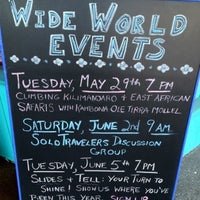 WIDE WORLD
EVENTS
TUESDAY, MAY 29th 7 PM
CLIMBING KILIMANJARO & EAST AFRICAN
SAFARIS WITH KAMBONA OLE TIRRA MOLLEL
SATURDAY, JUNE 2nd 9AM
SOLO TRAVELERS DISCUSSION
GROUP
TUESDAY, JUNE 5th 7PM
SLIDES + TELL: YOUR TURN TO
SHINE! SHOW US WHERE YOU'VE
BEEN THIS YEAR. SIGN UP